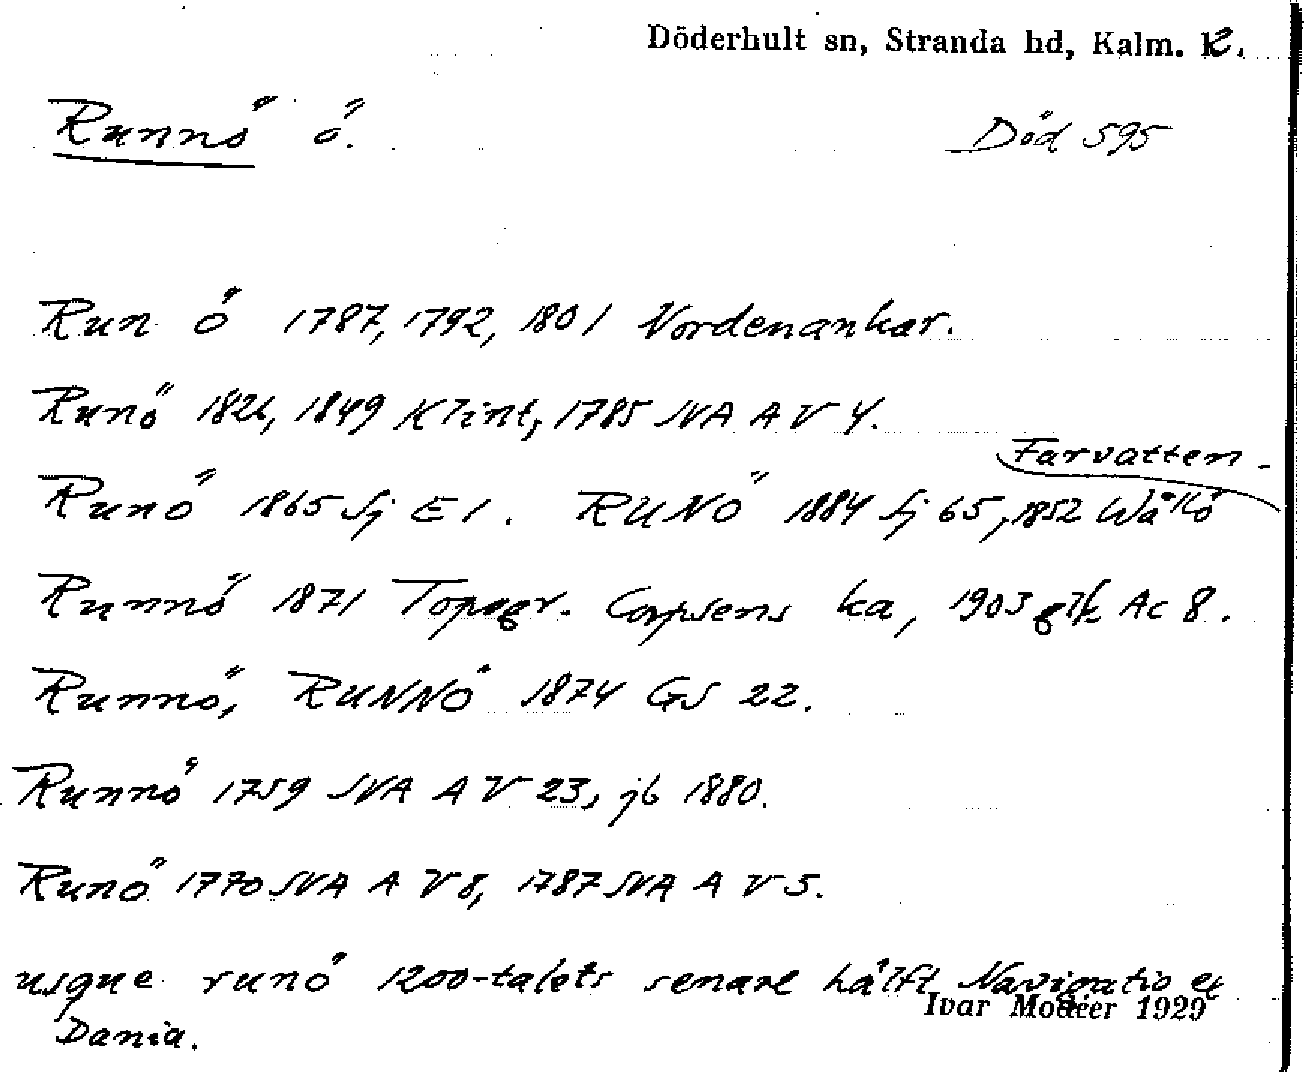 Döderhult sn, Stranda hd, Kalm. l.
Runnö ö. Död 595
Run ö 1787, 1792, 1801 Nordenankar.
Runö 1826, 1849 Klint, 1785 SVA A V 4.
Farvatten-
Runö 1865 Sj E 1. RUNÖ 1884 Sj 65, 1852 Wålö
Runnö 1871 Topogr. Corpsens ka, 1903 glk Ac 8.
Runnö, RUNNÖ 1874 GS 22.
Runnö 1759 SVA A V 23, jb 1880.
Runö 1770 SVA A V 8, 1787 SVA A V 5.
usque runö 1200-talets senare hälft Navigatio ex
Ivar Modéer 1929
Dania.